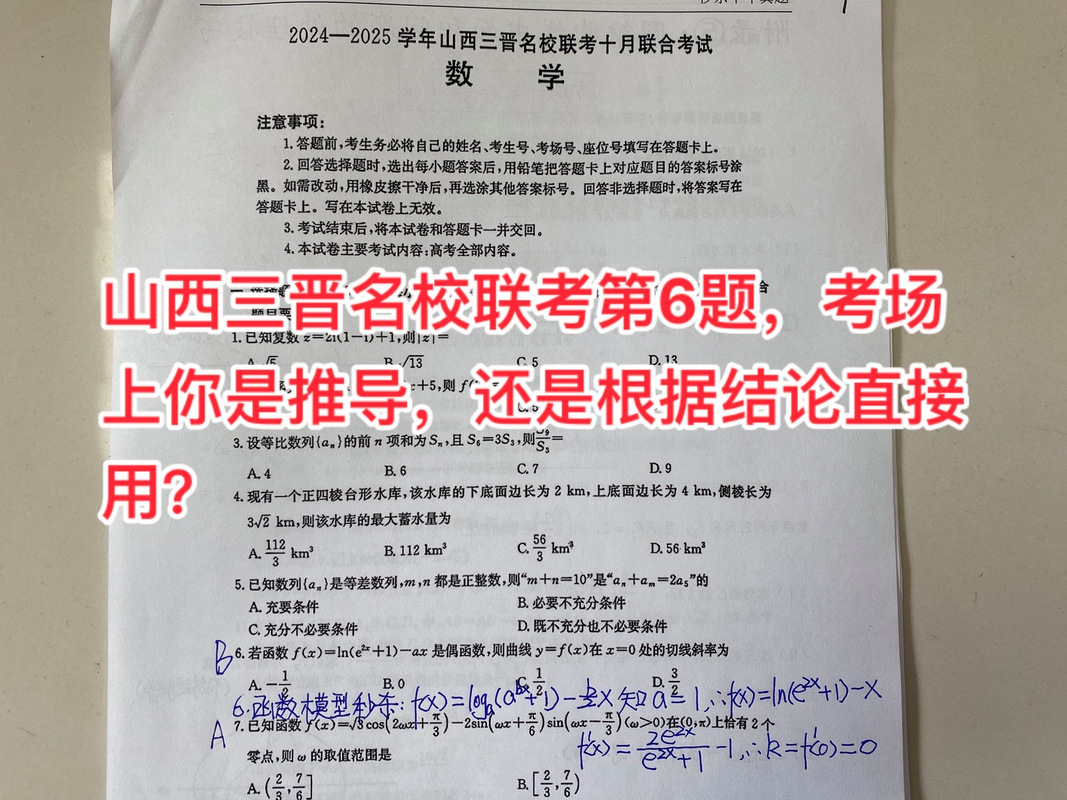 2024—2025 学年山西三晋名校联考十月联合考试
数 学
注意事项:
1. 答题前,考生务必将自己的姓名、考生号、考场号、座位号填写在答题卡上。
2. 回答选择题时,选出每小题答案后,用铅笔把答题卡上对应题目的答案标号涂
黑。如需改动,用橡皮擦干净后,再选涂其他答案标号。回答非选择题时,将答案写在
答题卡上。写在本试卷上无效。
3. 考试结束后,将本试卷和答题卡一并交回。
4. 本试卷主要考试内容:高考全部内容。
山西三晋名校联考第6题,考场
上你是推导,还是根据结论直接
用?
1. 已知复数 z=2i(1−i)+1,则|z|=
A. √5 B. √13 C. 5 D. 13
+5,则 f(
3. 设等比数列{aₙ}的前 n 项和为 Sₙ,且 S₆=3S₃,则S₉/S₃=
A. 4 B. 6 C. 7 D. 9
4. 现有一个正四棱台形水库,该水库的下底面边长为 2 km,上底面边长为 4 km,侧棱长为
3√2 km,则该水库的最大蓄水量为
A. 112/3 km³ B. 112 km³ C. 56/3 km³ D. 56 km³
5. 已知数列{aₙ}是等差数列,m,n 都是正整数,则“m+n=10”是“aₙ+aₘ=2a₅”的
A. 充要条件 B. 必要不充分条件
C. 充分不必要条件 D. 既不充分也不必要条件
B 6. 若函数 f(x)=ln(e²ˣ+1)−ax 是偶函数,则曲线 y=f(x)在 x=0 处的切线斜率为
A. −1/2 B. 0 C. 1/2 D. 3/2
6.函数模型秒杀: f(x)=logₐ(aᵇˣ+1)−b/2x 知a=1,∴f(x)=ln(e²ˣ+1)−x
A 7. 已知函数 f(x)=√3cos(2ωx+π/3)−2sin(ωx+π/6)sin(ωx−π/3)(ω>0)在(0,π)上恰有 2 个
f'(x)=2e²ˣ/(e²ˣ+1)−1,∴k=f'(0)=0
零点,则 ω 的取值范围是
A. (2/3,7/6] B. [2/3,7/6)